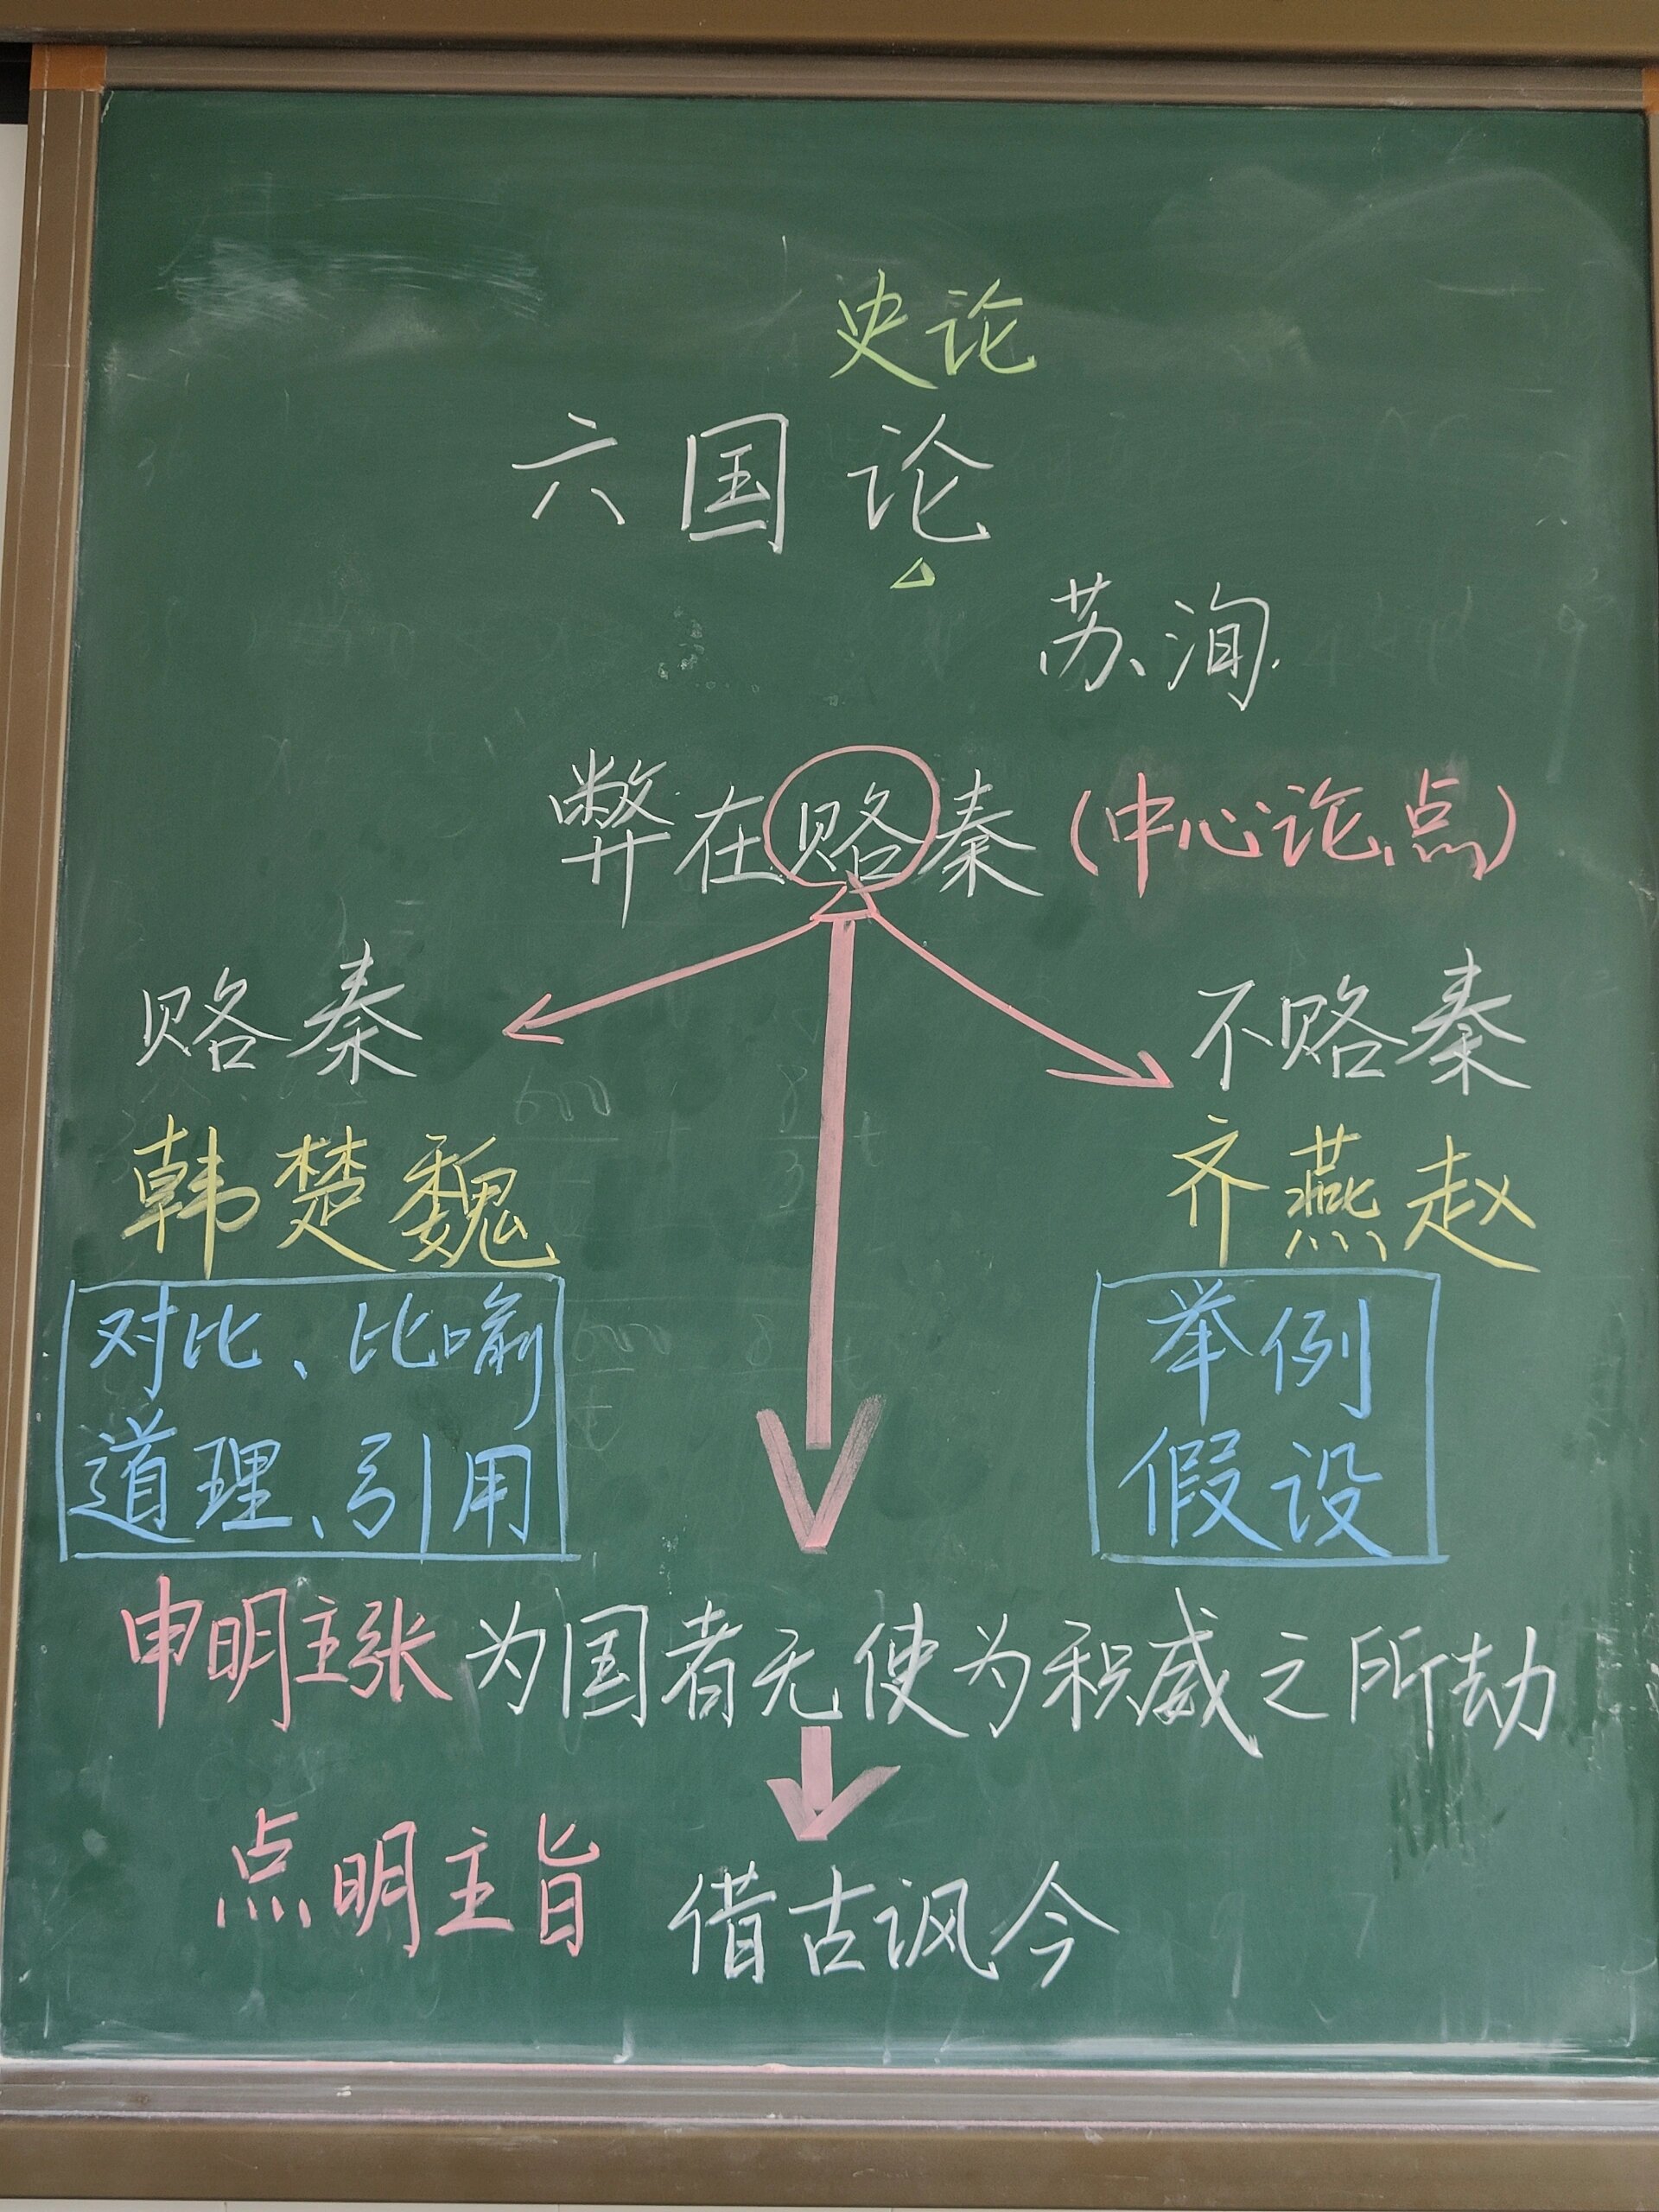 史论
六国论
苏洵
弊在赂秦(中心论点)
赂秦
不赂秦
韩楚魏
齐燕赵
对比、比喻
道理、引用
举例
假设
申明主张 为国者无使为积威之所劫
点明主旨 借古讽今